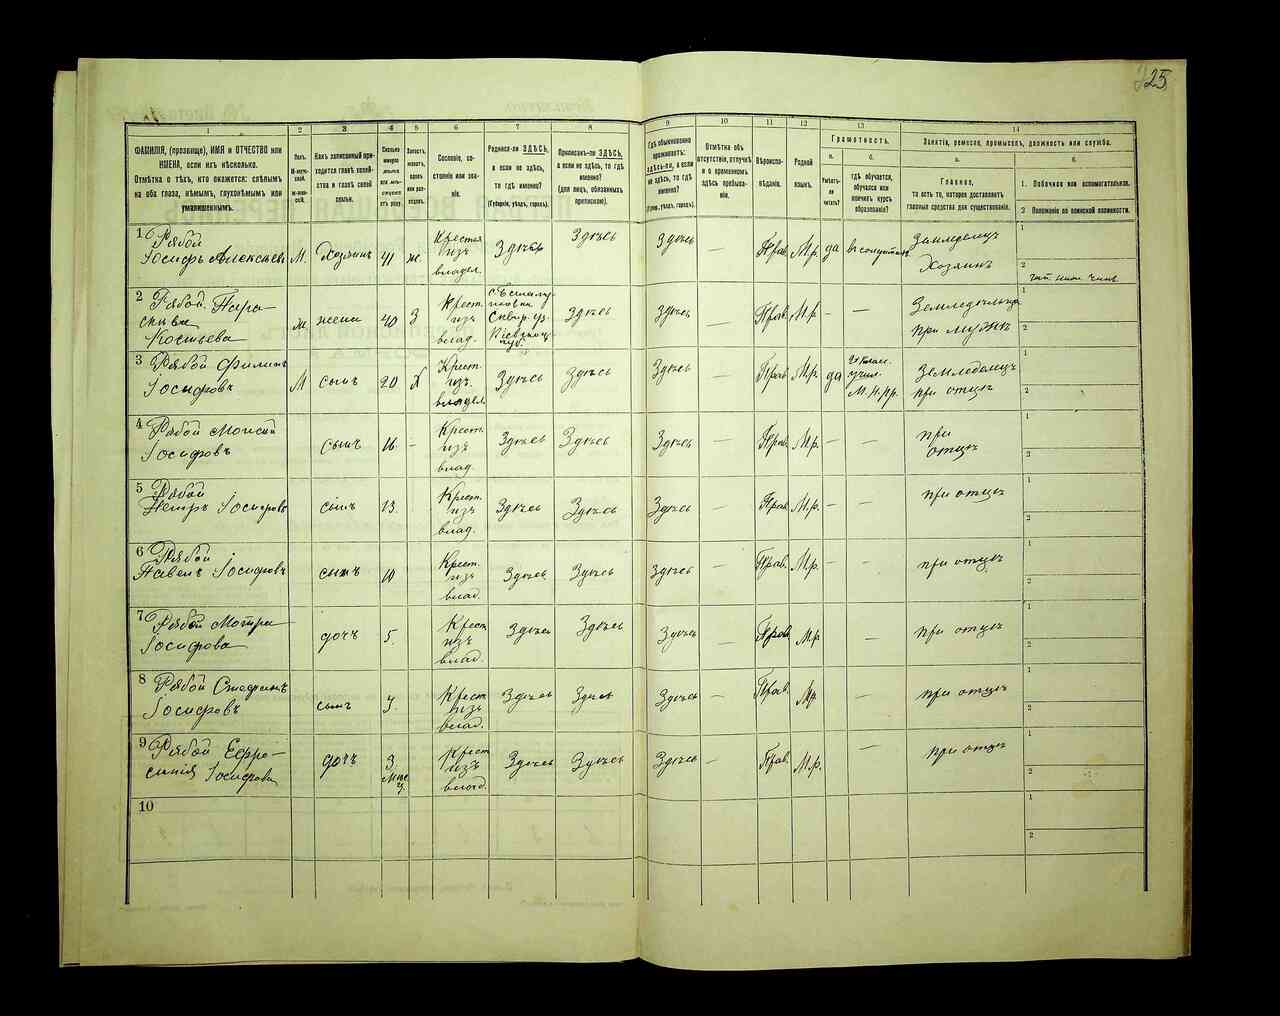 25
1 2 3 4 5 6 7 8 9 10 11 12 13 14
ФАМИЛІЯ, (прозвище), ИМЯ и ОТЧЕСТВО или
ИМЕНА, если ихъ нѣсколько.
Отмѣтка о тѣхъ, кто окажется: слѣпымъ
на оба глаза, нѣмымъ, глухонѣмымъ или
умалишеннымъ.
Полъ.
М-мужской.
Ж-женскій.
Какъ записанный при-
ходится главѣ хозяй-
ства и главѣ своей
семьи.
Сколько
минуло
лѣтъ
Холостъ,
женатъ,
вдовъ
или раз-
веденъ.
Сословіе, со-
стояніе или зва-
ніе.
Родился-ли ЗДѢСЬ,
а если не здѣсь,
то гдѣ именно?
(Губернія, уѣздъ, городъ).
Приписанъ-ли ЗДѢСЬ,
а если не здѣсь, то гдѣ
именно?
(для лицъ, обязанныхъ
припискою).
Гдѣ обыкновенно
проживаетъ:
здѣсь-ли, а если
не здѣсь, то гдѣ
именно?
(Губернія, уѣздъ, городъ).
Отмѣтка объ
отсутствіи, отлучкѣ
и о временномъ
здѣсь пребыва-
ніи.
Вѣроиспо-
вѣданіе.
Родной
языкъ.
Грамотность.
а.
Умѣетъ-
ли
читать?
б.
гдѣ обучается,
обучался или
кончилъ курсъ
образованія?
Занятіе, ремесло, промыселъ, должность или служба.
а.
Главное,
то есть то, которое доставляетъ
главныя средства для существованія.
б.
1. Побочное или вспомогательное.
2 Положеніе по воинской повинности.
1 Рябой
Іосифъ Алексѣевъ М. Хозяинъ 41 ж. Крестья изъ владел. Здѣсь Здѣсь Здѣсь — Прав. М.р. да Земледелецъ Хозяинъ 1 2
2 Рябой Пара-
скева
Костьева ж. жена 40 З Крест. изъ влад. Сквир. уз. Кіевской губ. Здѣсь Здѣсь — Прав. М.р. — — при мужѣ 1 2
3 Рябой Филипъ
Іосифовъ М сынъ 20 Х Крест. изъ владел. Здѣсь Здѣсь Здѣсь — Прав. М.р. да учил. М.Н.Пр. при отцѣ 1 2
4 Рябой Моисей
Іосифовъ сынъ 16 — Крест. изъ влад. Здѣсь Здѣсь Здѣсь — Прав. М.р. — — при отцѣ 1 2
5 Рябой
Петръ Іосифовъ сынъ 13 Крест. изъ влад. Здѣсь Здѣсь Здѣсь — Прав. М.р. — — при отцѣ 1 2
6 Рябой
Павелъ Іосифовъ сынъ 10 Крест. изъ влад. Здѣсь Здѣсь Здѣсь — Прав. М.р. — — при отцѣ 1 2
7 Рябой Мотря
Іосифова дочь 5. Крест. изъ влад. Здѣсь Здѣсь Здѣсь — Прав. М.р. — при отцѣ 1 2
8 Рябой Стефанъ
Іосифовъ сынъ 3. Крест. изъ влад. Здѣсь Здѣсь Здѣсь — Прав. Мр. при отцѣ 1 2
9 Рябой Ефро-
синія Іосифова дочь 3 Крест. изъ влад. Здѣсь Здѣсь Здѣсь — Прав. М.р. — при отцѣ 1 2
10 1 2